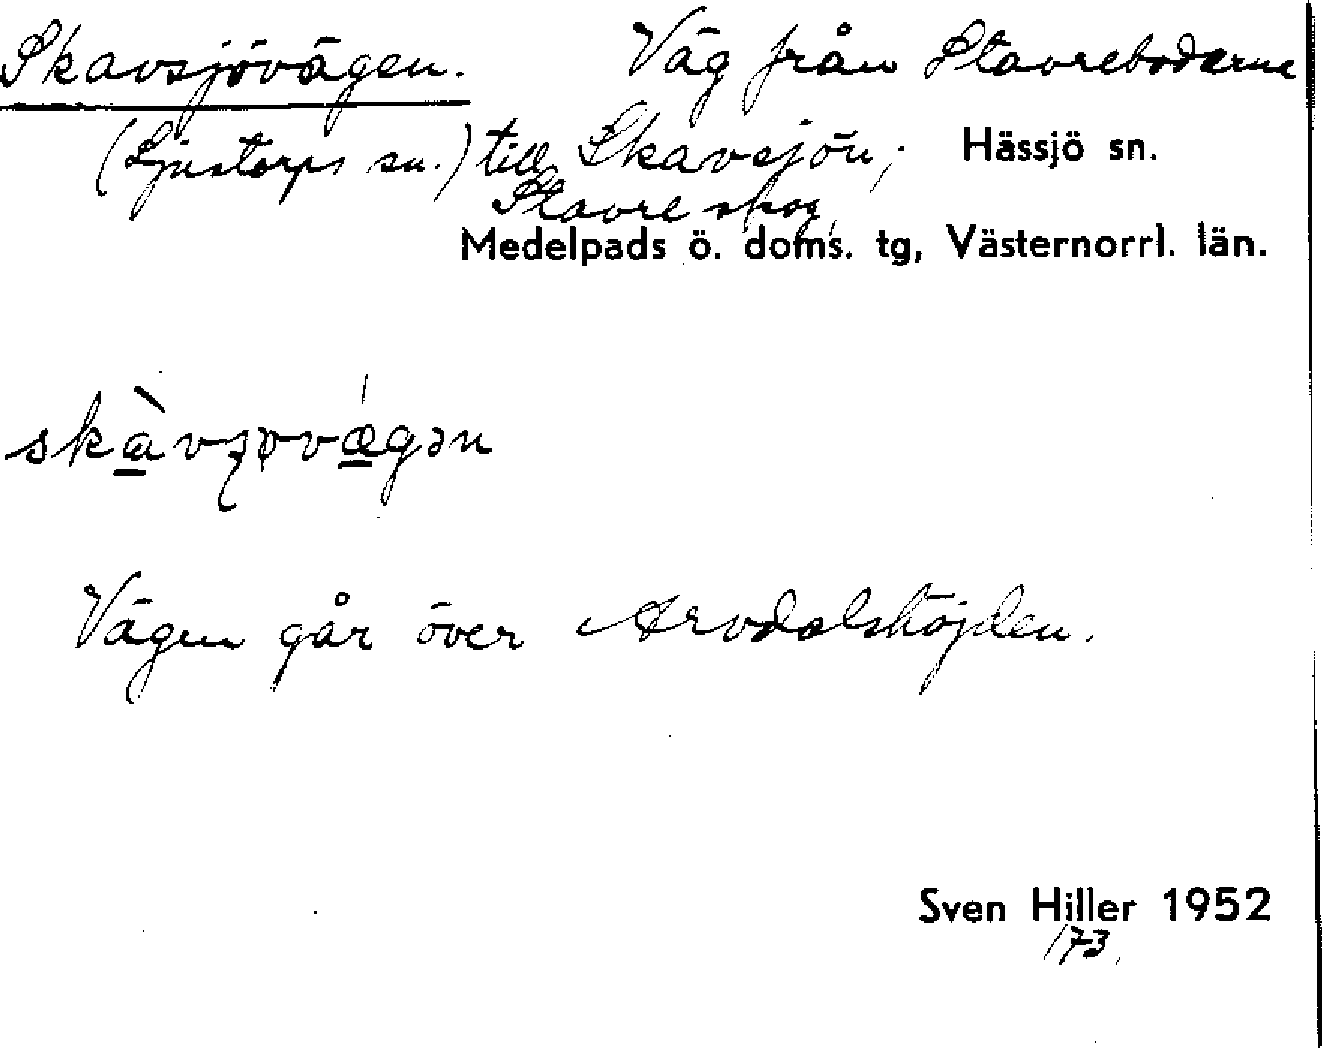 Skavsjövägen. Väg från Stavrebodarne
(Ljustorps sn.) till Skavsjön; Hässjö sn.
Stavre skog,
Medelpads ö. doms. tg, Västernorrl. län.
Vägen går över Arvdalshöjden.
Sven Hiller 1952
173.